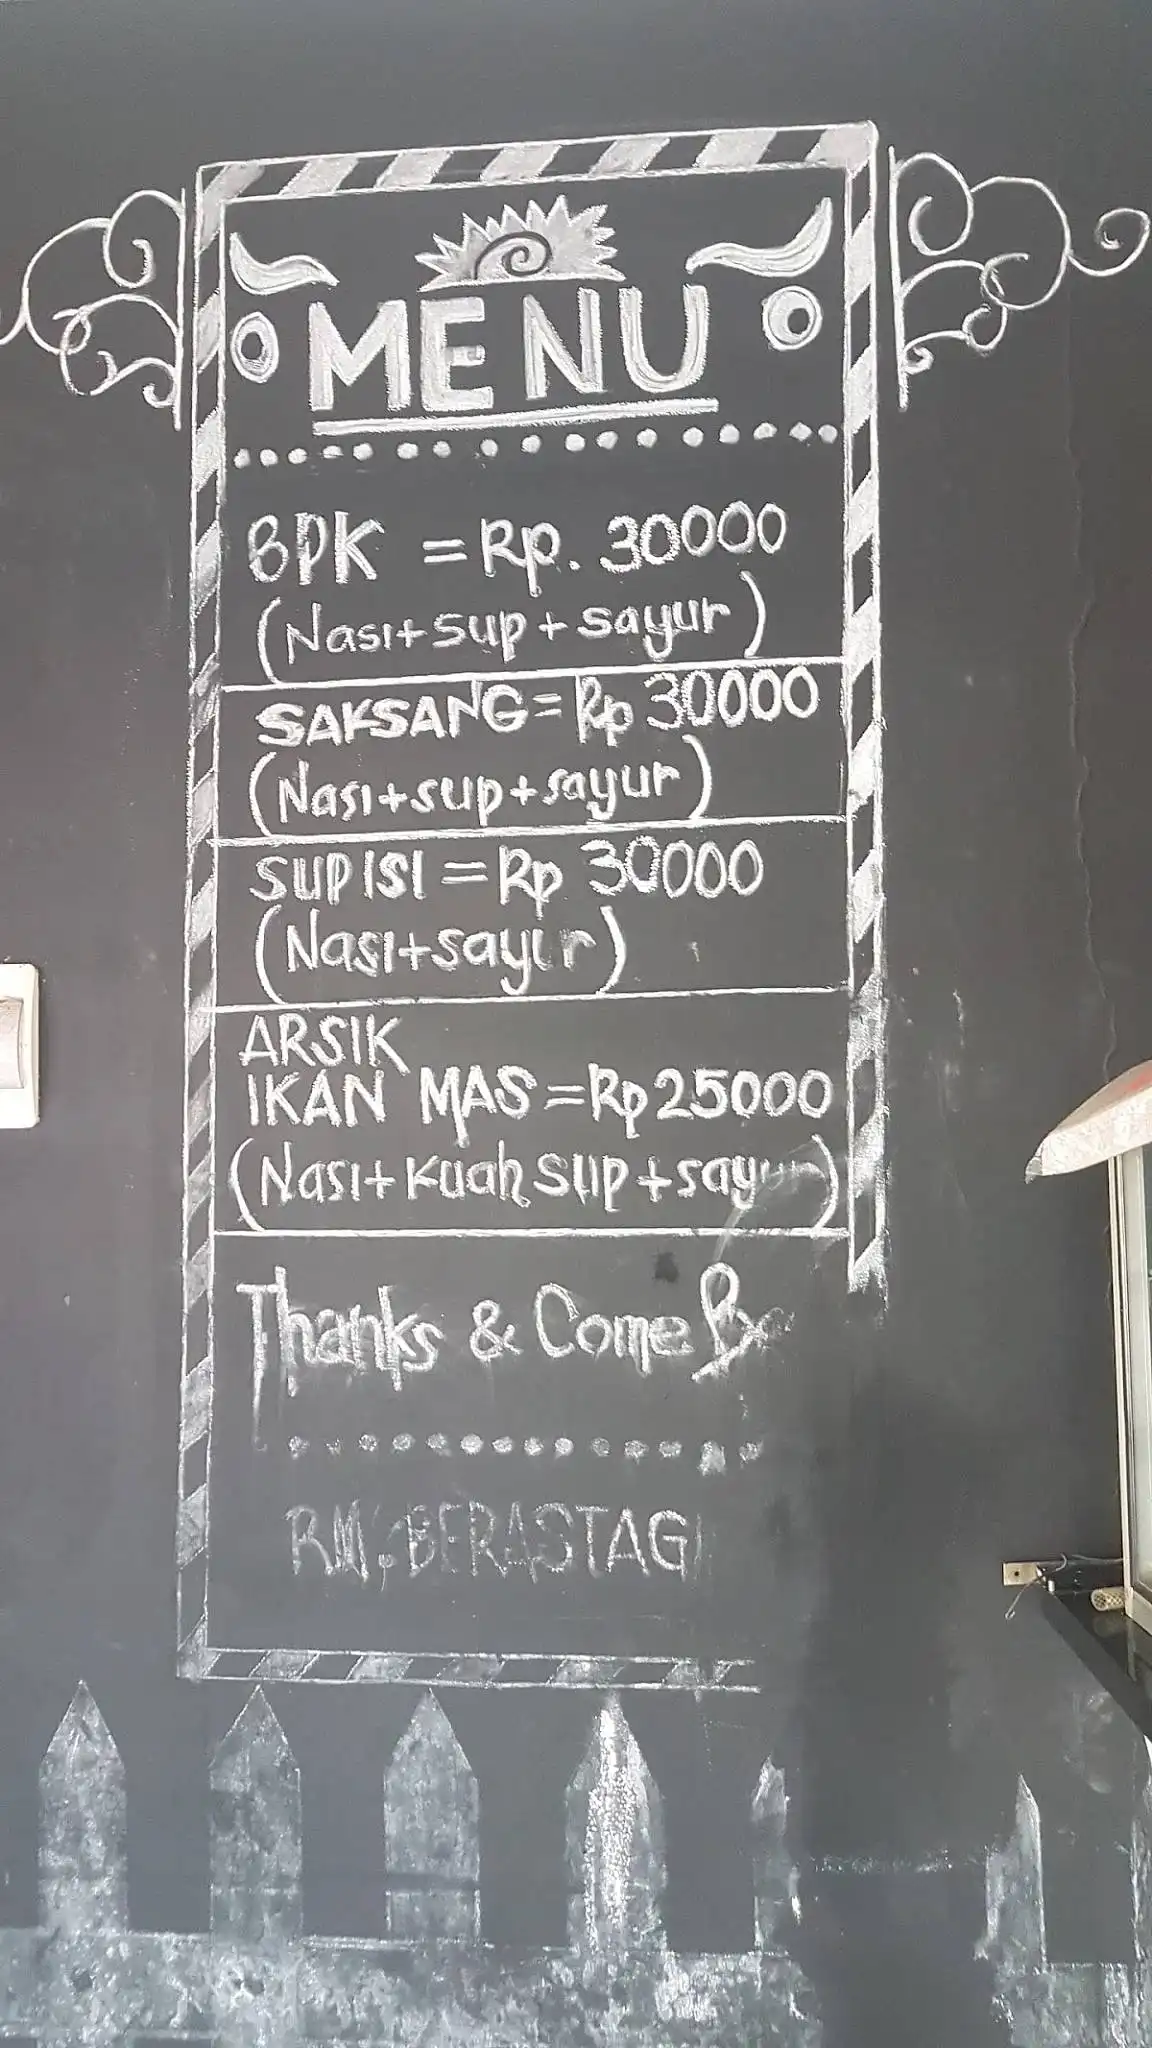 MENU
BPK = Rp. 30000
(Nasi + sup + sayur)
SAKSANG = Rp 30000
(Nasi + sup + sayur)
SUP ISI = Rp 30000
(Nasi + sayur)
ARSIK
IKAN MAS = Rp 25000
(Nasi + Kuah sup + sayur)
Thanks & Come
RM. BERASTAGI